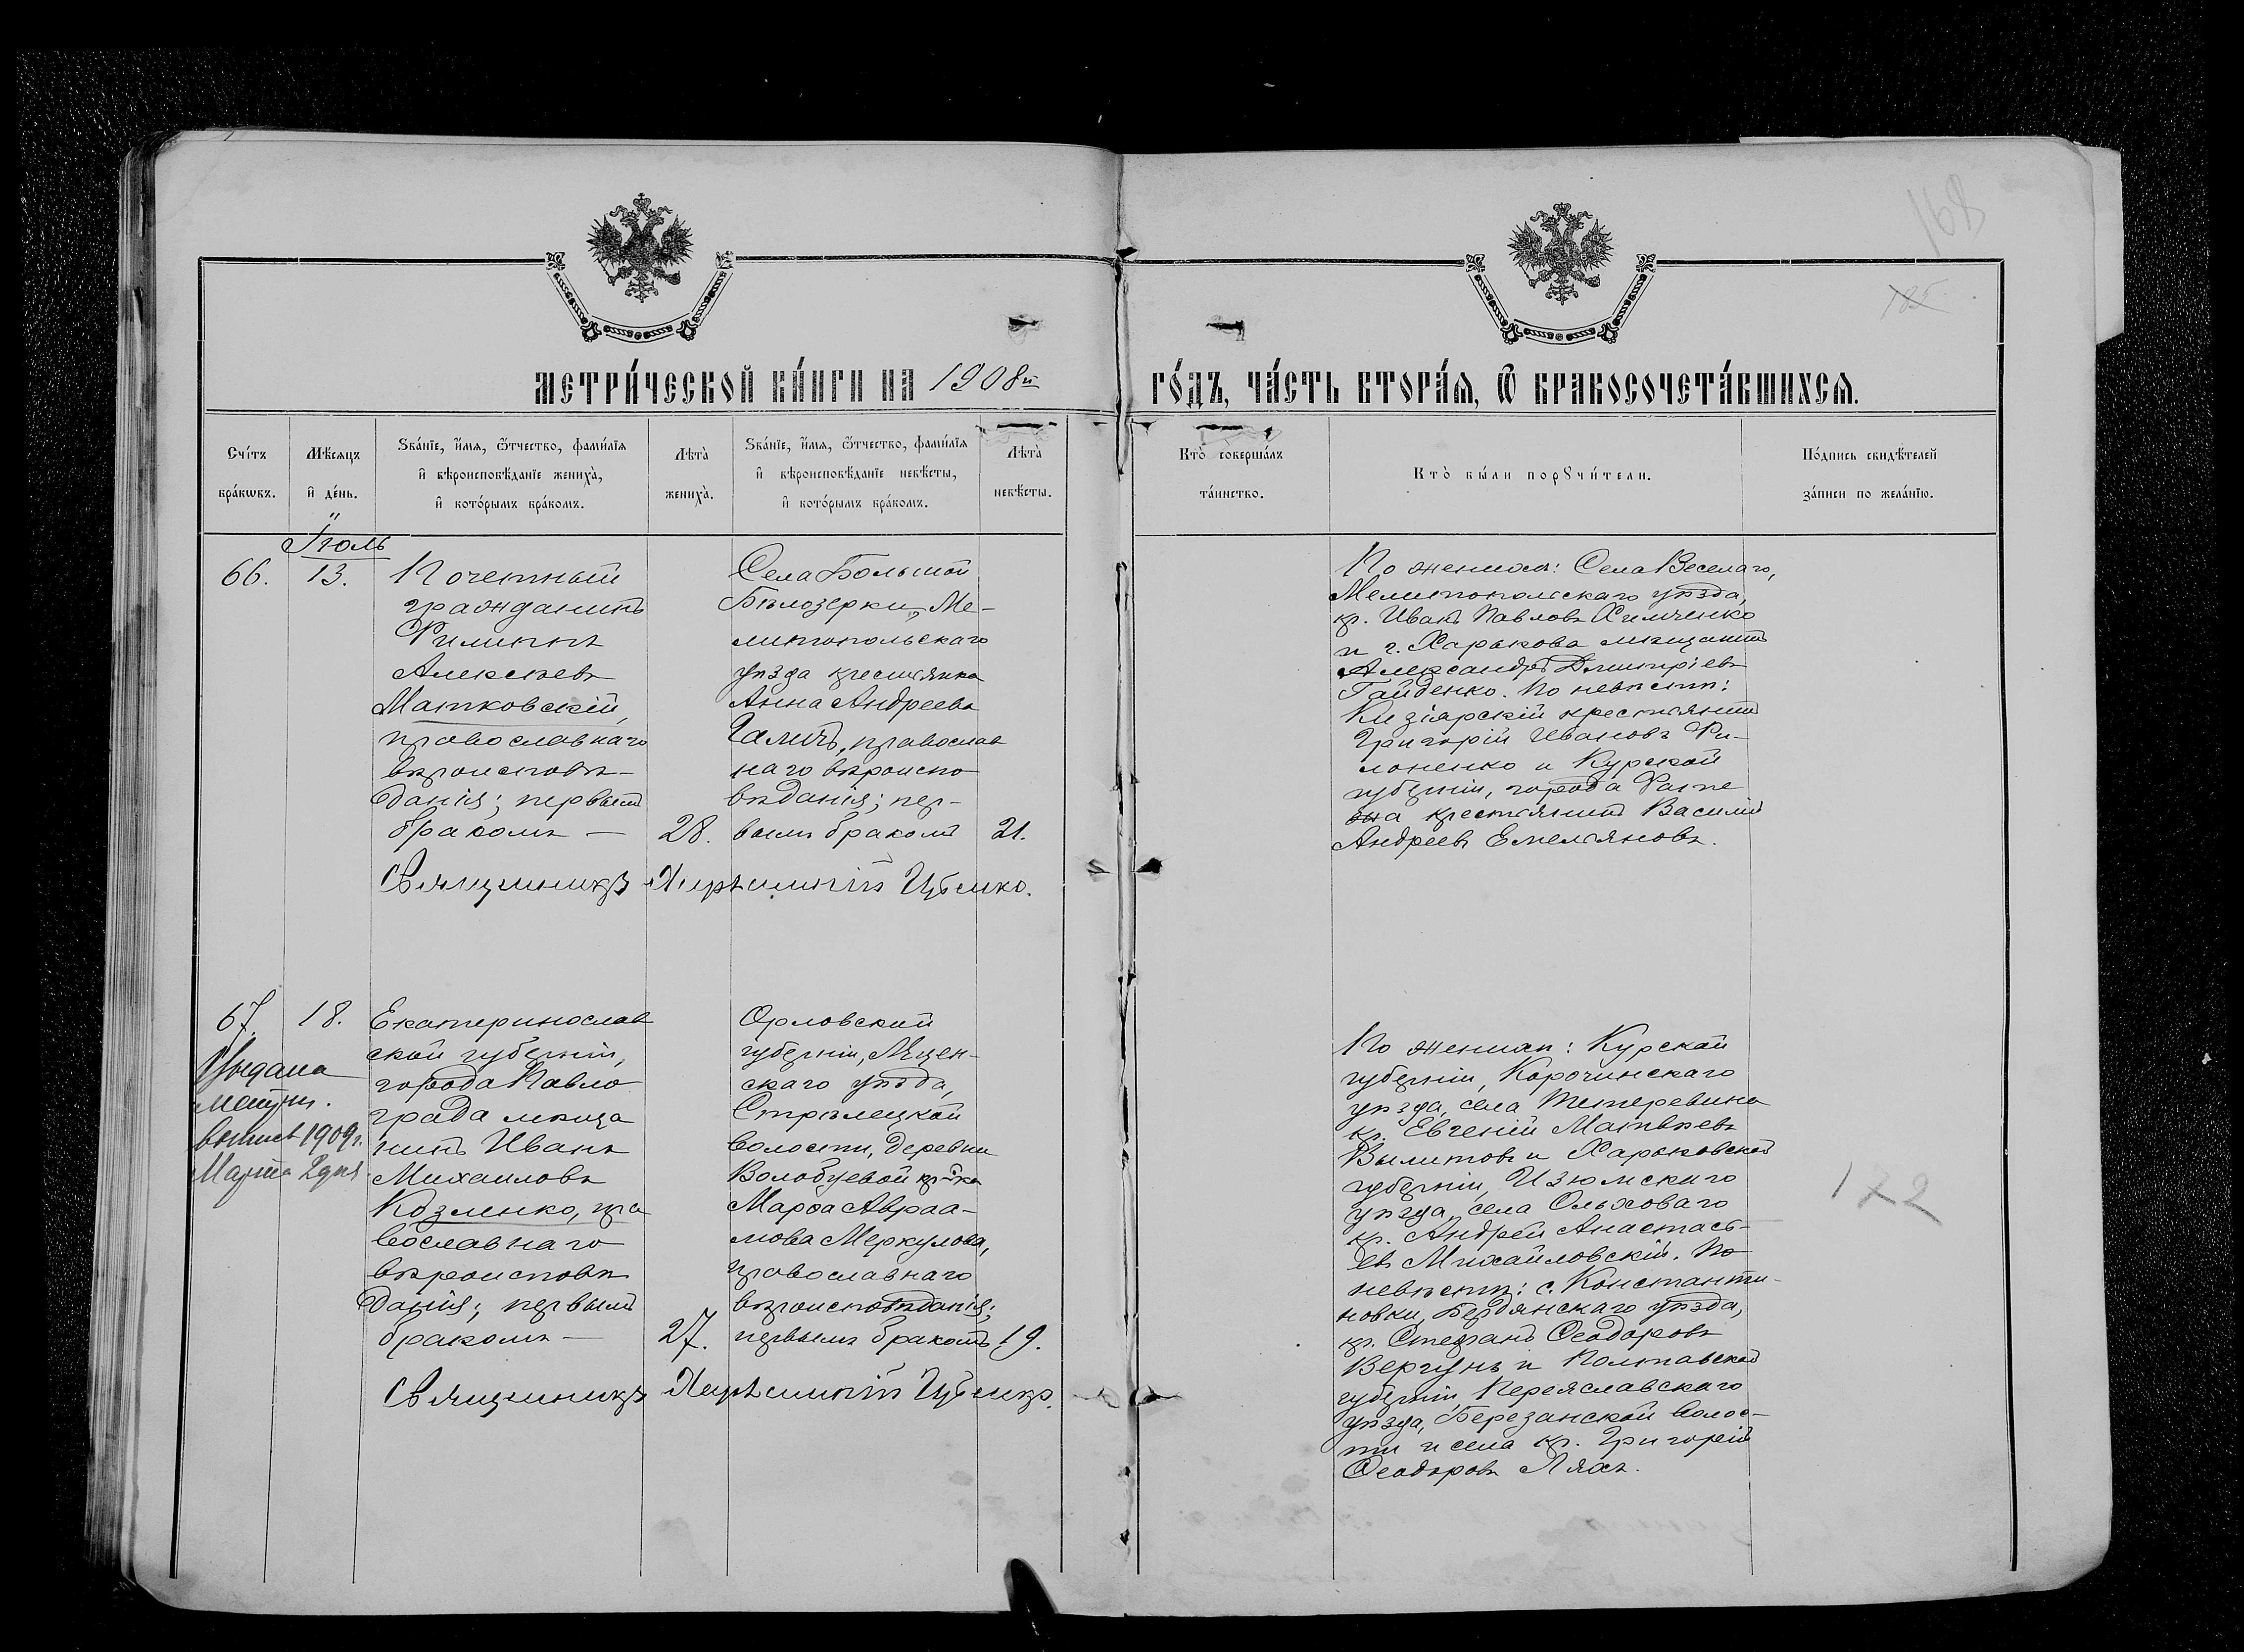 168
185
МЕТРИ́ЧЕСКОЙ КНИ́ГИ НА 1908й ГО́ДЪ, ЧА́СТЬ ВТОРА́Я, Ѿ БРАКОСОЧЕТА́ВШИХСЯ.
Сче́тъ бра́кωвъ.
Мѣ́сяцъ и де́нь.
Зва́нїе, и҆́мя, ѻ҆́тчество, фами́лїя и вѣроисповѣ́данїе жениха̀, и кото́рымъ бра́комъ.
Лѣта̀ жениха̀.
Зва́нїе, и҆́мя, ѻ҆́тчество, фами́лїя и вѣроисповѣ́данїе невѣ́сты, и кото́рымъ бра́комъ.
Лѣта̀ невѣ́сты.
Кто̀ соверша́лъ та́инство.
Кто̀ бы́ли порꙋчи́тели.
По́дпись свидѣ́телей за́писи по жела́нїю.
Іюль
66.
13.
Почетный
гражданинъ
Филиппъ
Алексѣевъ
Матковскій,
православнаго
вѣроисповѣ-
данія; первымъ
бракомъ —
28.
Села Большой
Бѣлозерки, Ме-
литопольскаго
уѣзда крестьянка
Анна Андреева
Галичъ, православ
наго вѣроиспо
вѣданія; пер-
вымъ бракомъ
21.
Священникъ
По женихѣ: Села Веселаго,
Мелитопольскаго уѣзда,
кр. Иванъ Павловъ Химченко
и г. Харькова мѣщанинъ
Александръ Димитріевъ
Гайденко. По невѣстѣ:
Кизіярскій крестьянинъ
Григорій Ивановъ Фи-
лоненко и Курской
губерніи, города
крестьянинъ Василій
Андреевъ Емельяновъ.
67.
18.
Выдана
метрич.
выпись 1909 г.
Марта 2 дня
Екатеринослав
ской губерніи,
города Павло
града мѣща
нинъ Иванъ
Михаиловъ
Козленко, пра
вославнаго
вѣроисповѣ
данія; первымъ
бракомъ —
27.
Орловской
губерніи, Мцен-
скаго уѣзда,
Стрѣлецкой
волости, деревни
Волобуевой кр-ка
Марѳа Авраа-
мова Меркулова,
православнаго
вѣроисповѣданія;
первымъ бракомъ
19.
Священникъ
По женихѣ: Курской
губерніи, Корочинскаго
уѣзда, села Тетеревина
кр. Евгеній Матвѣевъ
и Харьковской
губерніи, Изюмскаго
уѣзда, села Ольховаго
кр. Андрей Анастась-
евъ Михайловскій. По
невѣстѣ: с. Константи-
новки, Бердянскаго уѣзда,
кр. Стефанъ Ѳеодоровъ
Вергунъ и Полтавской
губерніи, Переяславскаго
уѣзда, Березанской волос-
ти и села кр. Григорій
Ѳеодоровъ Ляхъ.
172